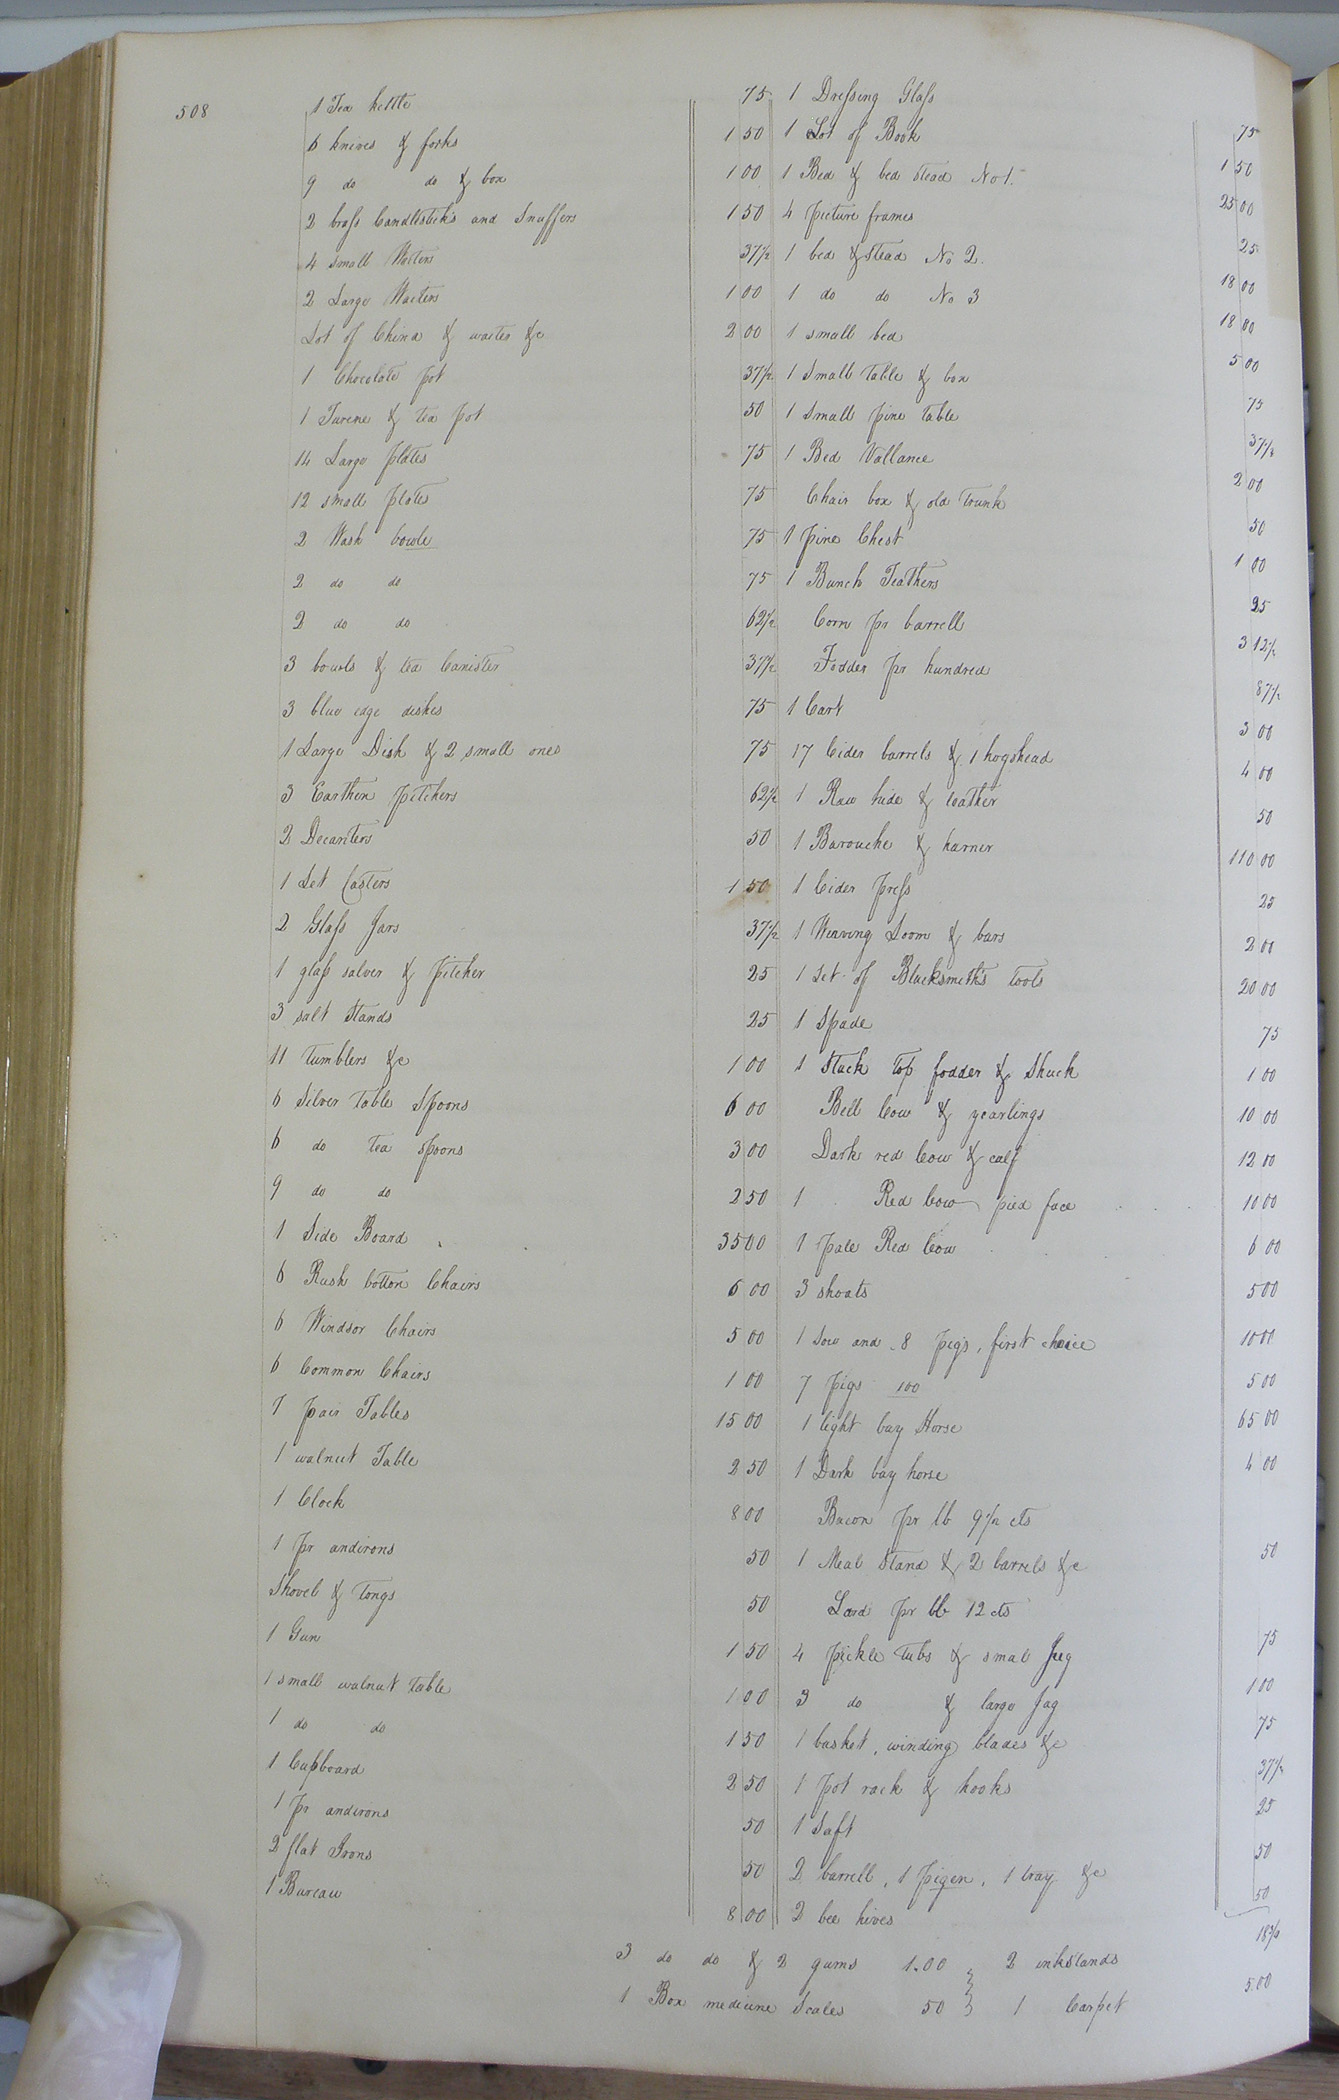 508
1 Tea kettle 75
6 knives & forks 1 50
9 do do & box 1 00
2 brass Candlesticks and Snuffers 1 50
4 small Waiters 37½
2 Large Waiters 1 00
Lot of China & waiter &c 2 00
1 Chocolate pot 37½
1 Turene & tea pot 50
14 Large plates 75
12 small plates 75
2 Wash bowls 75
2 do do 75
2 do do 62½
3 bowls & tea Canister 37½
3 blue edge dishes 75
1 Large Dish & 2 small ones 75
3 Earthen pitchers 62½
2 Decanters 50
1 Set Casters 1 50
2 Glass Jars 37½
1 glass salver & pitcher 25
3 salt Stands 25
11 tumblers &c 1 00
6 Silver table Spoons 6 00
6 do tea spoons 3 00
9 do do 2 50
1 Side Board 35 00
6 Rush bottom Chairs 6 00
6 Windsor Chairs 5 00
6 Common Chairs 1 00
1 pair Tables 15 00
1 walnut Table 2 50
1 Clock 8 00
1 pr andirons 50
Shovel & tongs 50
1 Gun 1 50
1 small walnut table 1 00
1 do do 1 50
1 Cupboard 2 50
1 pr andirons 50
2 flat Irons 50
1 Bureau 8 00
1 Dressing Glass 75
1 Lot of Book 1 50
1 Bed & bed stead No 1. 25 00
4 picture frames 25
1 bed & stead No 2. 18 00
1 do do No 3 18 00
1 small bed 5 00
1 Small table & box 75
1 small pine table 37½
1 Bed Vallance 2 00
Chair box & old trunk 50
1 pine Chest 1 00
1 Bunch Feathers 25
Corn pr barrell 3 12½
Fodder pr hundred 87½
1 Cart 3 00
17 Cider barrels & 1 hogshead 4 00
1 Raw hide & leather 50
1 Barouche & harner 110 00
1 Cider press 25
1 Weaving Loom & bars 2 00
1 Set of Blacksmith's tools 20 00
1 Spade 75
1 Stack top fodder & Shuck 1 00
Bell Cow & yearlings 10 00
Dark red Cow & calf 12 00
1 Red Cow pied face 10 00
1 pale Red Cow 6 00
3 shoats 5 00
1 Sow and 8 pigs, first choice 10 00
7 pigs 100 5 00
1 light bay Horse 65 00
1 Dark bay horse 4 00
Bacon pr lb 9½ cts
1 Meal Stand & 2 barrels &c 50
Lard pr lb 12 cts
4 pickle tubs & smal Jug 75
3 do & large Jag 1 00
1 basket, winding blades &c 75
1 pot rack & hooks 37½
1 Saft 25
2 barrell, 1 pigen, 1 tray &c 50
2 bee hives 50
3 do do & 2 gums 1.00 2 inkstands 18¾
1 Box medicine Scales 50 1 Carpet 5.00